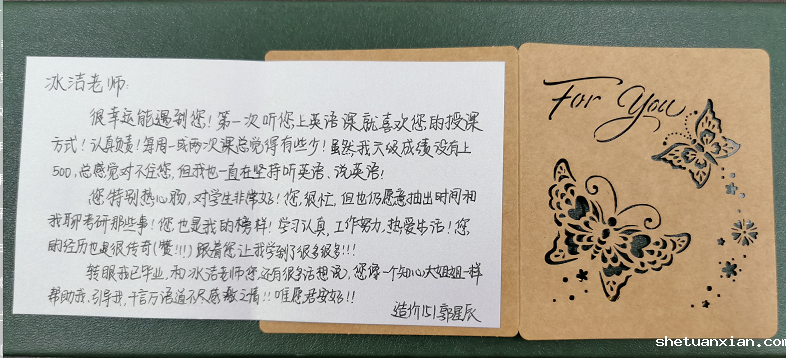 冰洁老师:
很幸运能遇到您!第一次听您上英语课就喜欢您的授课
方式!认真负责!每周一或两次课总觉得有些少!虽然我六级成绩没有上
500,总感觉对不住您,但我也一直在坚持听英语、说英语!
您特别热心肠,对学生非常好!您很忙,但也仍愿意抽出时间和
我聊考研那些事!您也是我的榜样!学习认真,工作努力,热爱生活!您
的经历也是很传奇(赞!!!)跟着您让我学到了很多很多!!!
转眼我已毕业,和冰洁老师您还有很多话想说,您像一个知心大姐姐一样
帮助我、引导我,千言万语道不尽感激之情!!唯愿君安好!!
造价151郭星辰
For You
shetuanxian.com